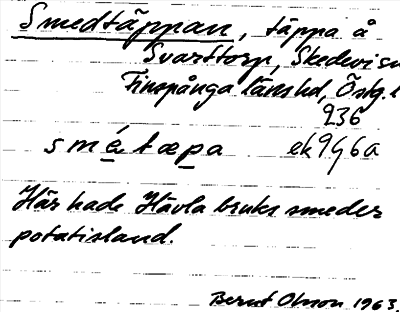 Smedtäppan, täppa å
Svarttorp, Skedevi sn
Finspånga länshd, Östg. l
236
smétæpa ek9g6a
Här hade Hävla bruks smeder
potatisland.
Bernt Olsson 1963.